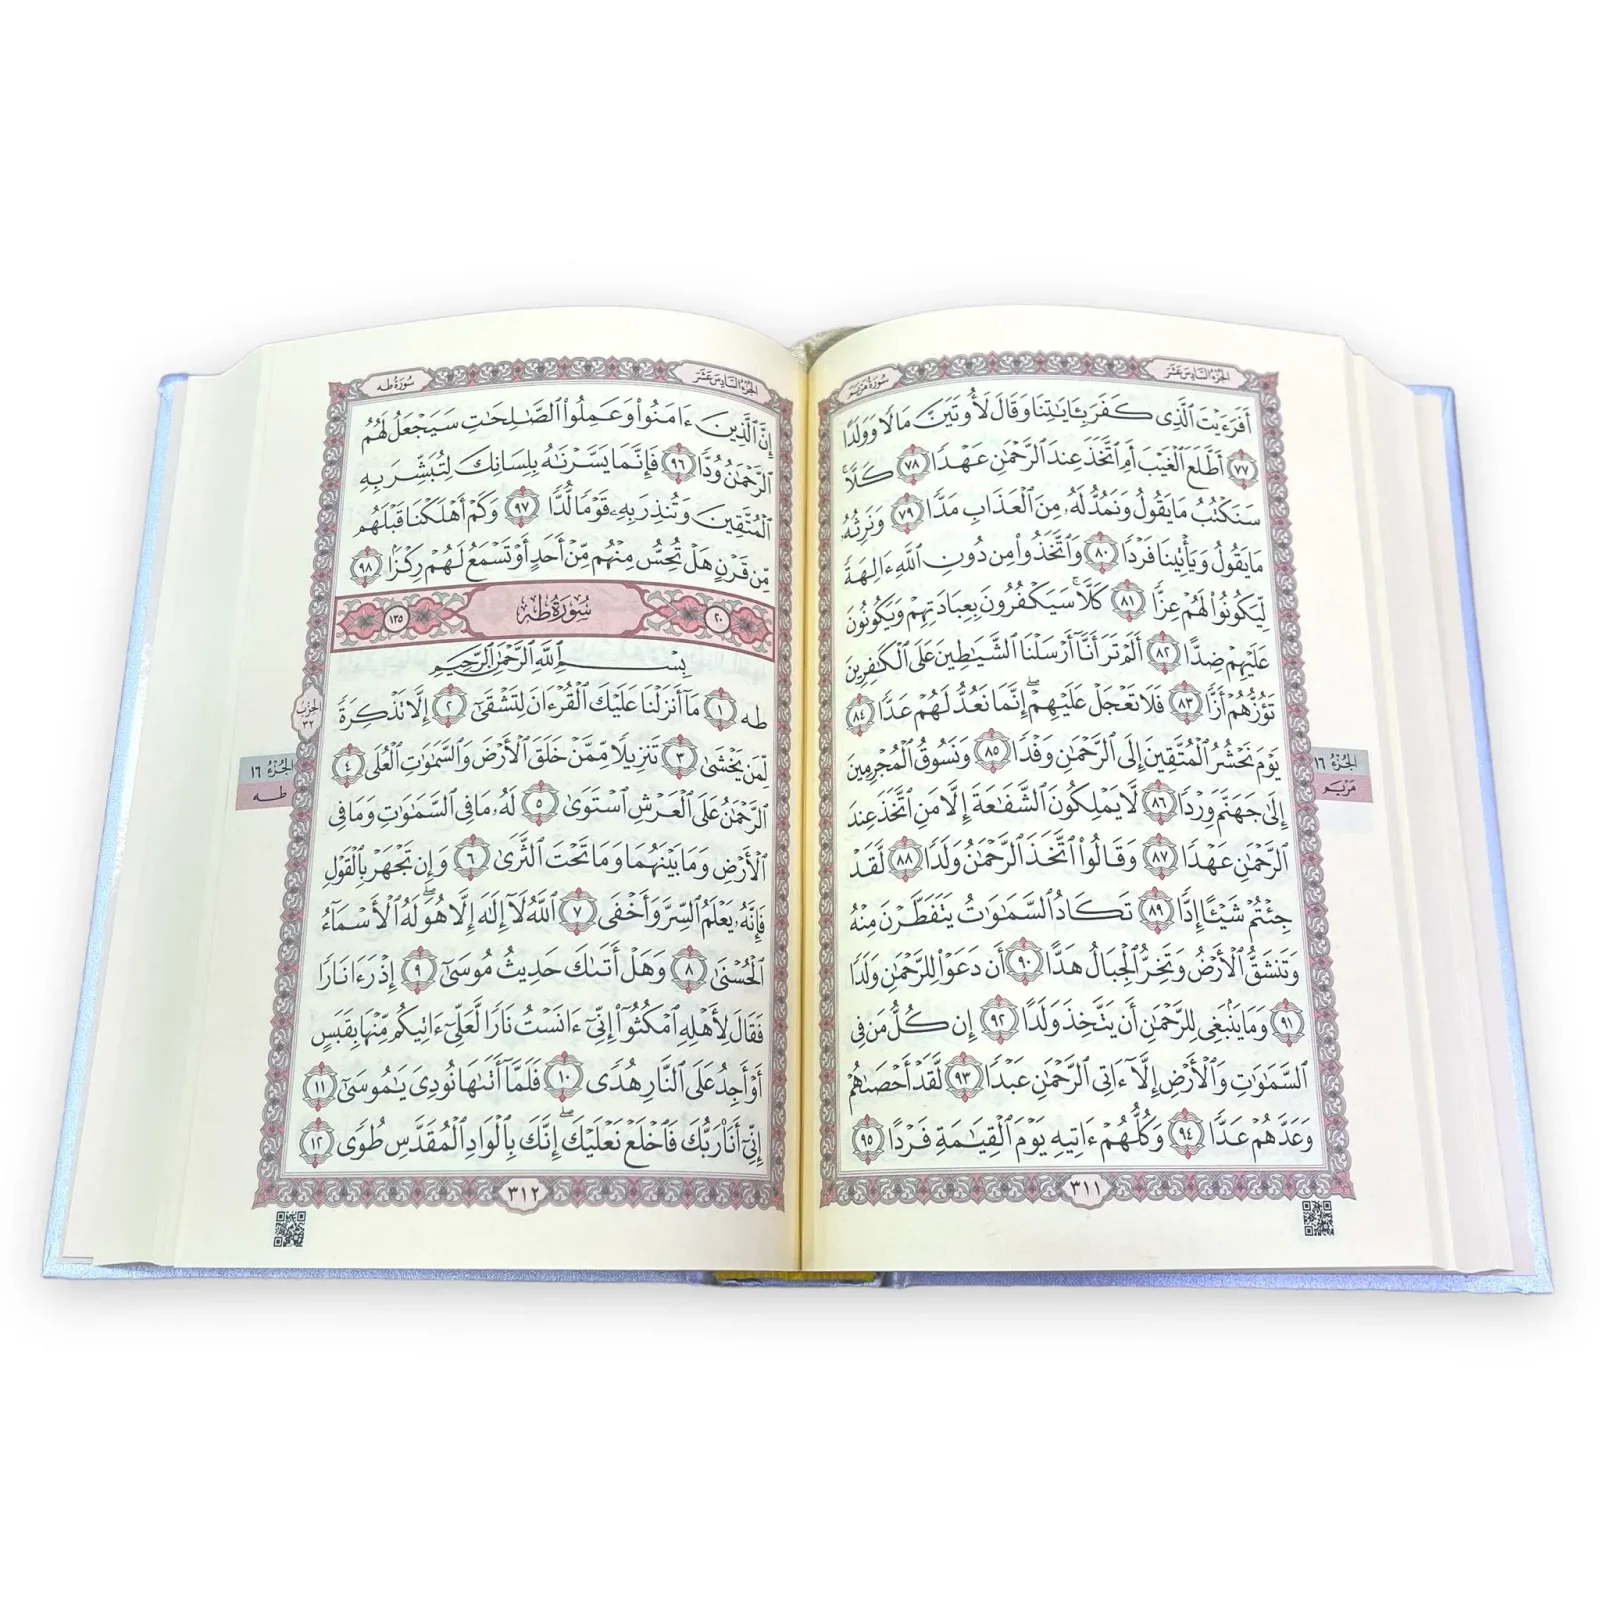 سُورَةُ مَرْيَم
الجُزْءُ السَّادِسَ عَشَرَ
أَفَرَءَيْتَ ٱلَّذِى كَفَرَ بِـَٔايَٰتِنَا وَقَالَ لَأُوتَيَنَّ مَالًا وَوَلَدًا
٧٧ أَطَّلَعَ ٱلْغَيْبَ أَمِ ٱتَّخَذَ عِندَ ٱلرَّحْمَٰنِ عَهْدًا ٧٨ كَلَّا ۚ
سَنَكْتُبُ مَا يَقُولُ وَنَمُدُّ لَهُۥ مِنَ ٱلْعَذَابِ مَدًّا ٧٩ وَنَرِثُهُۥ
مَا يَقُولُ وَيَأْتِينَا فَرْدًا ٨٠ وَٱتَّخَذُوا۟ مِن دُونِ ٱللَّهِ ءَالِهَةً
لِّيَكُونُوا۟ لَهُمْ عِزًّا ٨١ كَلَّا ۚ سَيَكْفُرُونَ بِعِبَادَتِهِمْ وَيَكُونُونَ
عَلَيْهِمْ ضِدًّا ٨٢ أَلَمْ تَرَ أَنَّآ أَرْسَلْنَا ٱلشَّيَٰطِينَ عَلَى ٱلْكَٰفِرِينَ
تَؤُزُّهُمْ أَزًّا ٨٣ فَلَا تَعْجَلْ عَلَيْهِمْ ۖ إِنَّمَا نَعُدُّ لَهُمْ عَدًّا ٨٤
يَوْمَ نَحْشُرُ ٱلْمُتَّقِينَ إِلَى ٱلرَّحْمَٰنِ وَفْدًا ٨٥ وَنَسُوقُ ٱلْمُجْرِمِينَ
إِلَىٰ جَهَنَّمَ وِرْدًا ٨٦ لَّا يَمْلِكُونَ ٱلشَّفَٰعَةَ إِلَّا مَنِ ٱتَّخَذَ عِندَ
ٱلرَّحْمَٰنِ عَهْدًا ٨٧ وَقَالُوا۟ ٱتَّخَذَ ٱلرَّحْمَٰنُ وَلَدًا ٨٨ لَّقَدْ
جِئْتُمْ شَيْـًٔا إِدًّا ٨٩ تَكَادُ ٱلسَّمَٰوَٰتُ يَتَفَطَّرْنَ مِنْهُ
وَتَنشَقُّ ٱلْأَرْضُ وَتَخِرُّ ٱلْجِبَالُ هَدًّا ٩٠ أَن دَعَوْا۟ لِلرَّحْمَٰنِ وَلَدًا
٩١ وَمَا يَنۢبَغِى لِلرَّحْمَٰنِ أَن يَتَّخِذَ وَلَدًا ٩٢ إِن كُلُّ مَن فِى
ٱلسَّمَٰوَٰتِ وَٱلْأَرْضِ إِلَّآ ءَاتِى ٱلرَّحْمَٰنِ عَبْدًا ٩٣ لَّقَدْ أَحْصَىٰهُمْ
وَعَدَّهُمْ عَدًّا ٩٤ وَكُلُّهُمْ ءَاتِيهِ يَوْمَ ٱلْقِيَٰمَةِ فَرْدًا ٩٥
الجُزْءُ ١٦
مَرْيَم
٣١١
سُورَةُ طه
الجُزْءُ السَّادِسَ عَشَرَ
إِنَّ ٱلَّذِينَ ءَامَنُوا۟ وَعَمِلُوا۟ ٱلصَّٰلِحَٰتِ سَيَجْعَلُ لَهُمُ
ٱلرَّحْمَٰنُ وُدًّا ٩٦ فَإِنَّمَا يَسَّرْنَٰهُ بِلِسَانِكَ لِتُبَشِّرَ بِهِ
ٱلْمُتَّقِينَ وَتُنذِرَ بِهِۦ قَوْمًا لُّدًّا ٩٧ وَكَمْ أَهْلَكْنَا قَبْلَهُم
مِّن قَرْنٍ هَلْ تُحِسُّ مِنْهُم مِّنْ أَحَدٍ أَوْ تَسْمَعُ لَهُمْ رِكْزًۢا ٩٨
٢٠ سُورَةُ طه ١٣٥
بِسْمِ ٱللَّهِ ٱلرَّحْمَٰنِ ٱلرَّحِيمِ
طه ١ مَآ أَنزَلْنَا عَلَيْكَ ٱلْقُرْءَانَ لِتَشْقَىٰٓ ٢ إِلَّا تَذْكِرَةً
لِّمَن يَخْشَىٰ ٣ تَنزِيلًا مِّمَّنْ خَلَقَ ٱلْأَرْضَ وَٱلسَّمَٰوَٰتِ ٱلْعُلَى ٤
ٱلرَّحْمَٰنُ عَلَى ٱلْعَرْشِ ٱسْتَوَىٰ ٥ لَهُۥ مَا فِى ٱلسَّمَٰوَٰتِ وَمَا فِى
ٱلْأَرْضِ وَمَا بَيْنَهُمَا وَمَا تَحْتَ ٱلثَّرَىٰ ٦ وَإِن تَجْهَرْ بِٱلْقَوْلِ
فَإِنَّهُۥ يَعْلَمُ ٱلسِّرَّ وَأَخْفَى ٧ ٱللَّهُ لَآ إِلَٰهَ إِلَّا هُوَ ۖ لَهُ ٱلْأَسْمَآءُ
ٱلْحُسْنَىٰ ٨ وَهَلْ أَتَىٰكَ حَدِيثُ مُوسَىٰٓ ٩ إِذْ رَءَا نَارًا
فَقَالَ لِأَهْلِهِ ٱمْكُثُوٓا۟ إِنِّىٓ ءَانَسْتُ نَارًا لَّعَلِّىٓ ءَاتِيكُم مِّنْهَا بِقَبَسٍ
أَوْ أَجِدُ عَلَى ٱلنَّارِ هُدًى ١٠ فَلَمَّآ أَتَىٰهَا نُودِىَ يَٰمُوسَىٰٓ ١١
إِنِّىٓ أَنَا۠ رَبُّكَ فَٱخْلَعْ نَعْلَيْكَ ۖ إِنَّكَ بِٱلْوَادِ ٱلْمُقَدَّسِ طُوًى ١٢
الحِزْبُ
٣٢
الجُزْءُ ١٦
طه
٣١٢